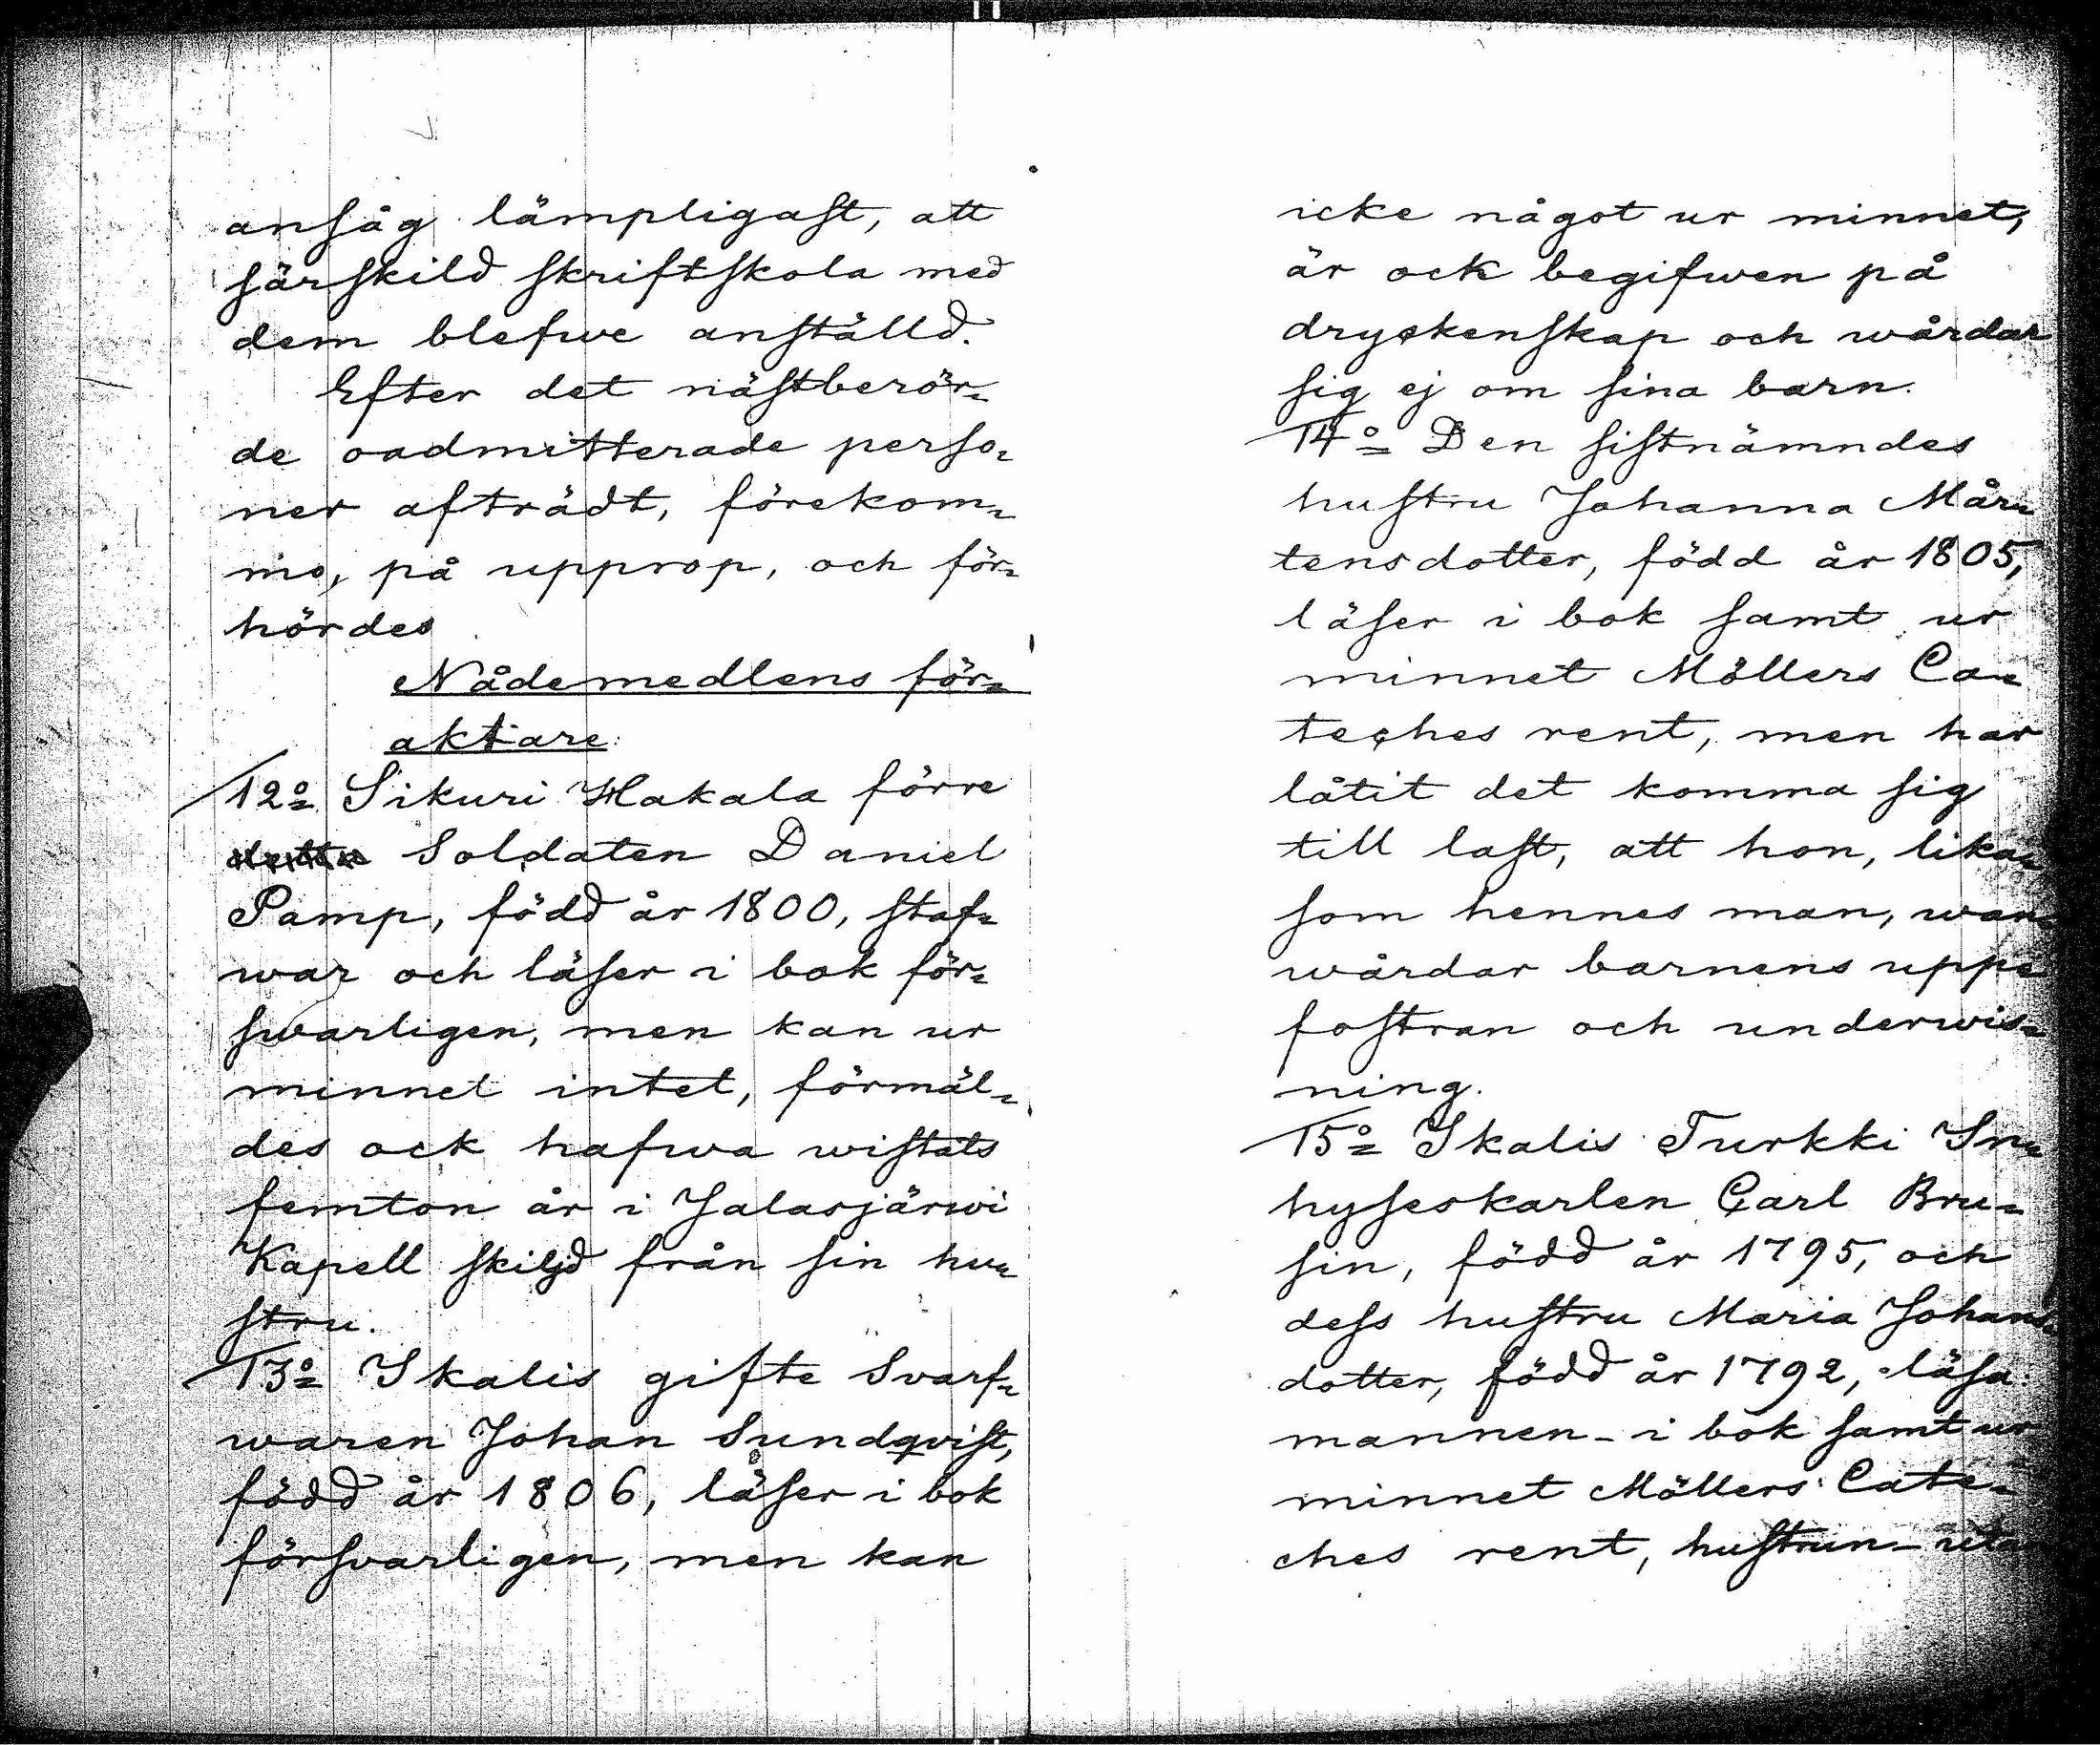 ansåg lämpligast, att
särskild skriftskola med
dem blefwe anställd.
Efter det nästberör-
de oadmitterade perso-
ner afträdt, förekom-
mo, på upprop, och för-
hördes
Nådemedlens för-
aktare:
12o Sikuri Hakala förre
detta Soldaten Daniel
Pamp, född år 1800, staf-
war och läser i bok för-
swarligen, men kan ur
minnet intet, förmäl-
des ock hafwa wistats
femton år i Jalasjärwi
Kapell skiljd från sin hu-
stru.
13o Ikalis gifte Svarf-
waren Johan Sundqvist,
född år 1806, läser i bok
försvarligen, men kan
icke något ur minnet,
är ock begifwen på
dryckenskap och wårdar
sig ej om sina barn.
14o Den sistnämndes
hustru Johanna Mår-
tensdotter, född år 1805,
läser i bok samt ur
minnet Möllers Ca-
teches rent, men har
låtit det komma sig
till last, att hon, lika-
som hennes man, wan-
wårdar barnens upp-
fostran och underwis-
ning.
15o Ikalis Turkki In-
hyseskarlen Carl Bru-
sin, född år 1795, och
dess hustru Maria Johans-
dotter, född år 1792, läsa
mannen - i bok samt ur
minnet Möllers Cate-
ches rent, hustrun -